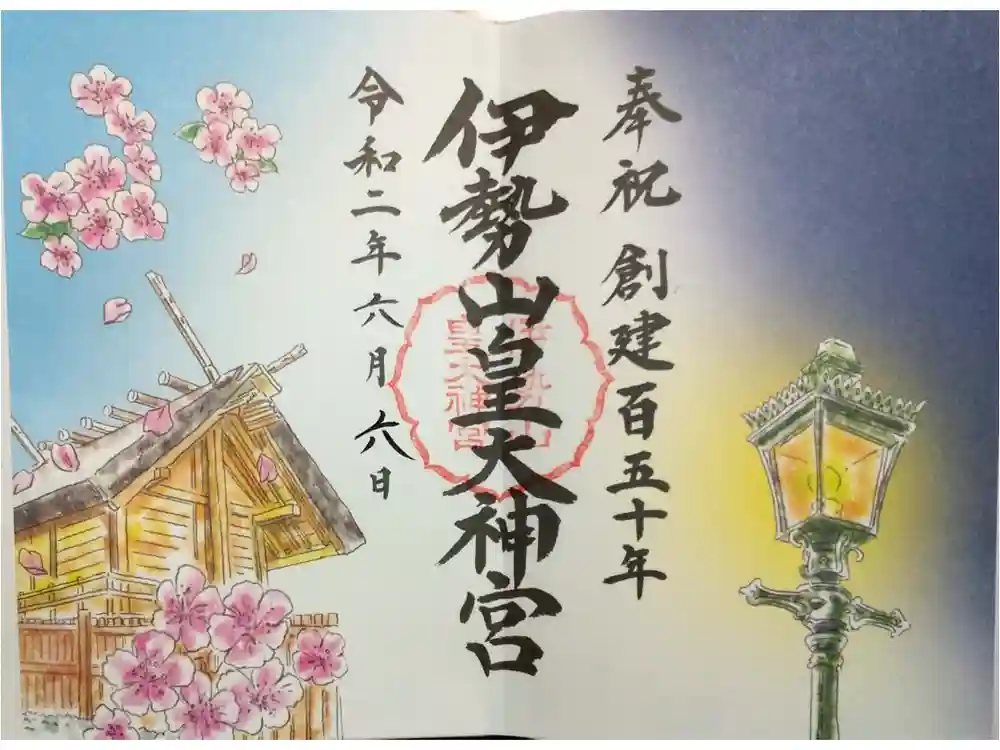 奉祝 創建百五十年
伊勢山皇大神宮
伊勢山
皇大神宮
令和二年六月六日